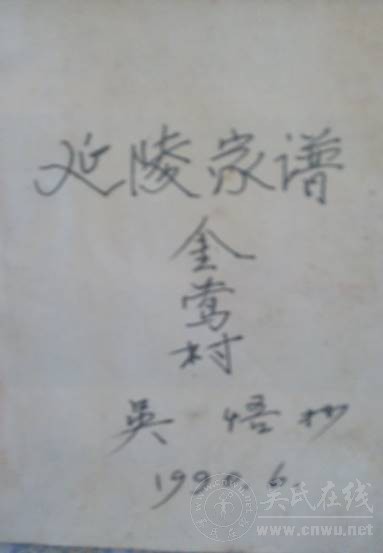 延陵家谱
金莺村
吴 悟抄
199 . 6.
吴氏在线
www.cnwu.net